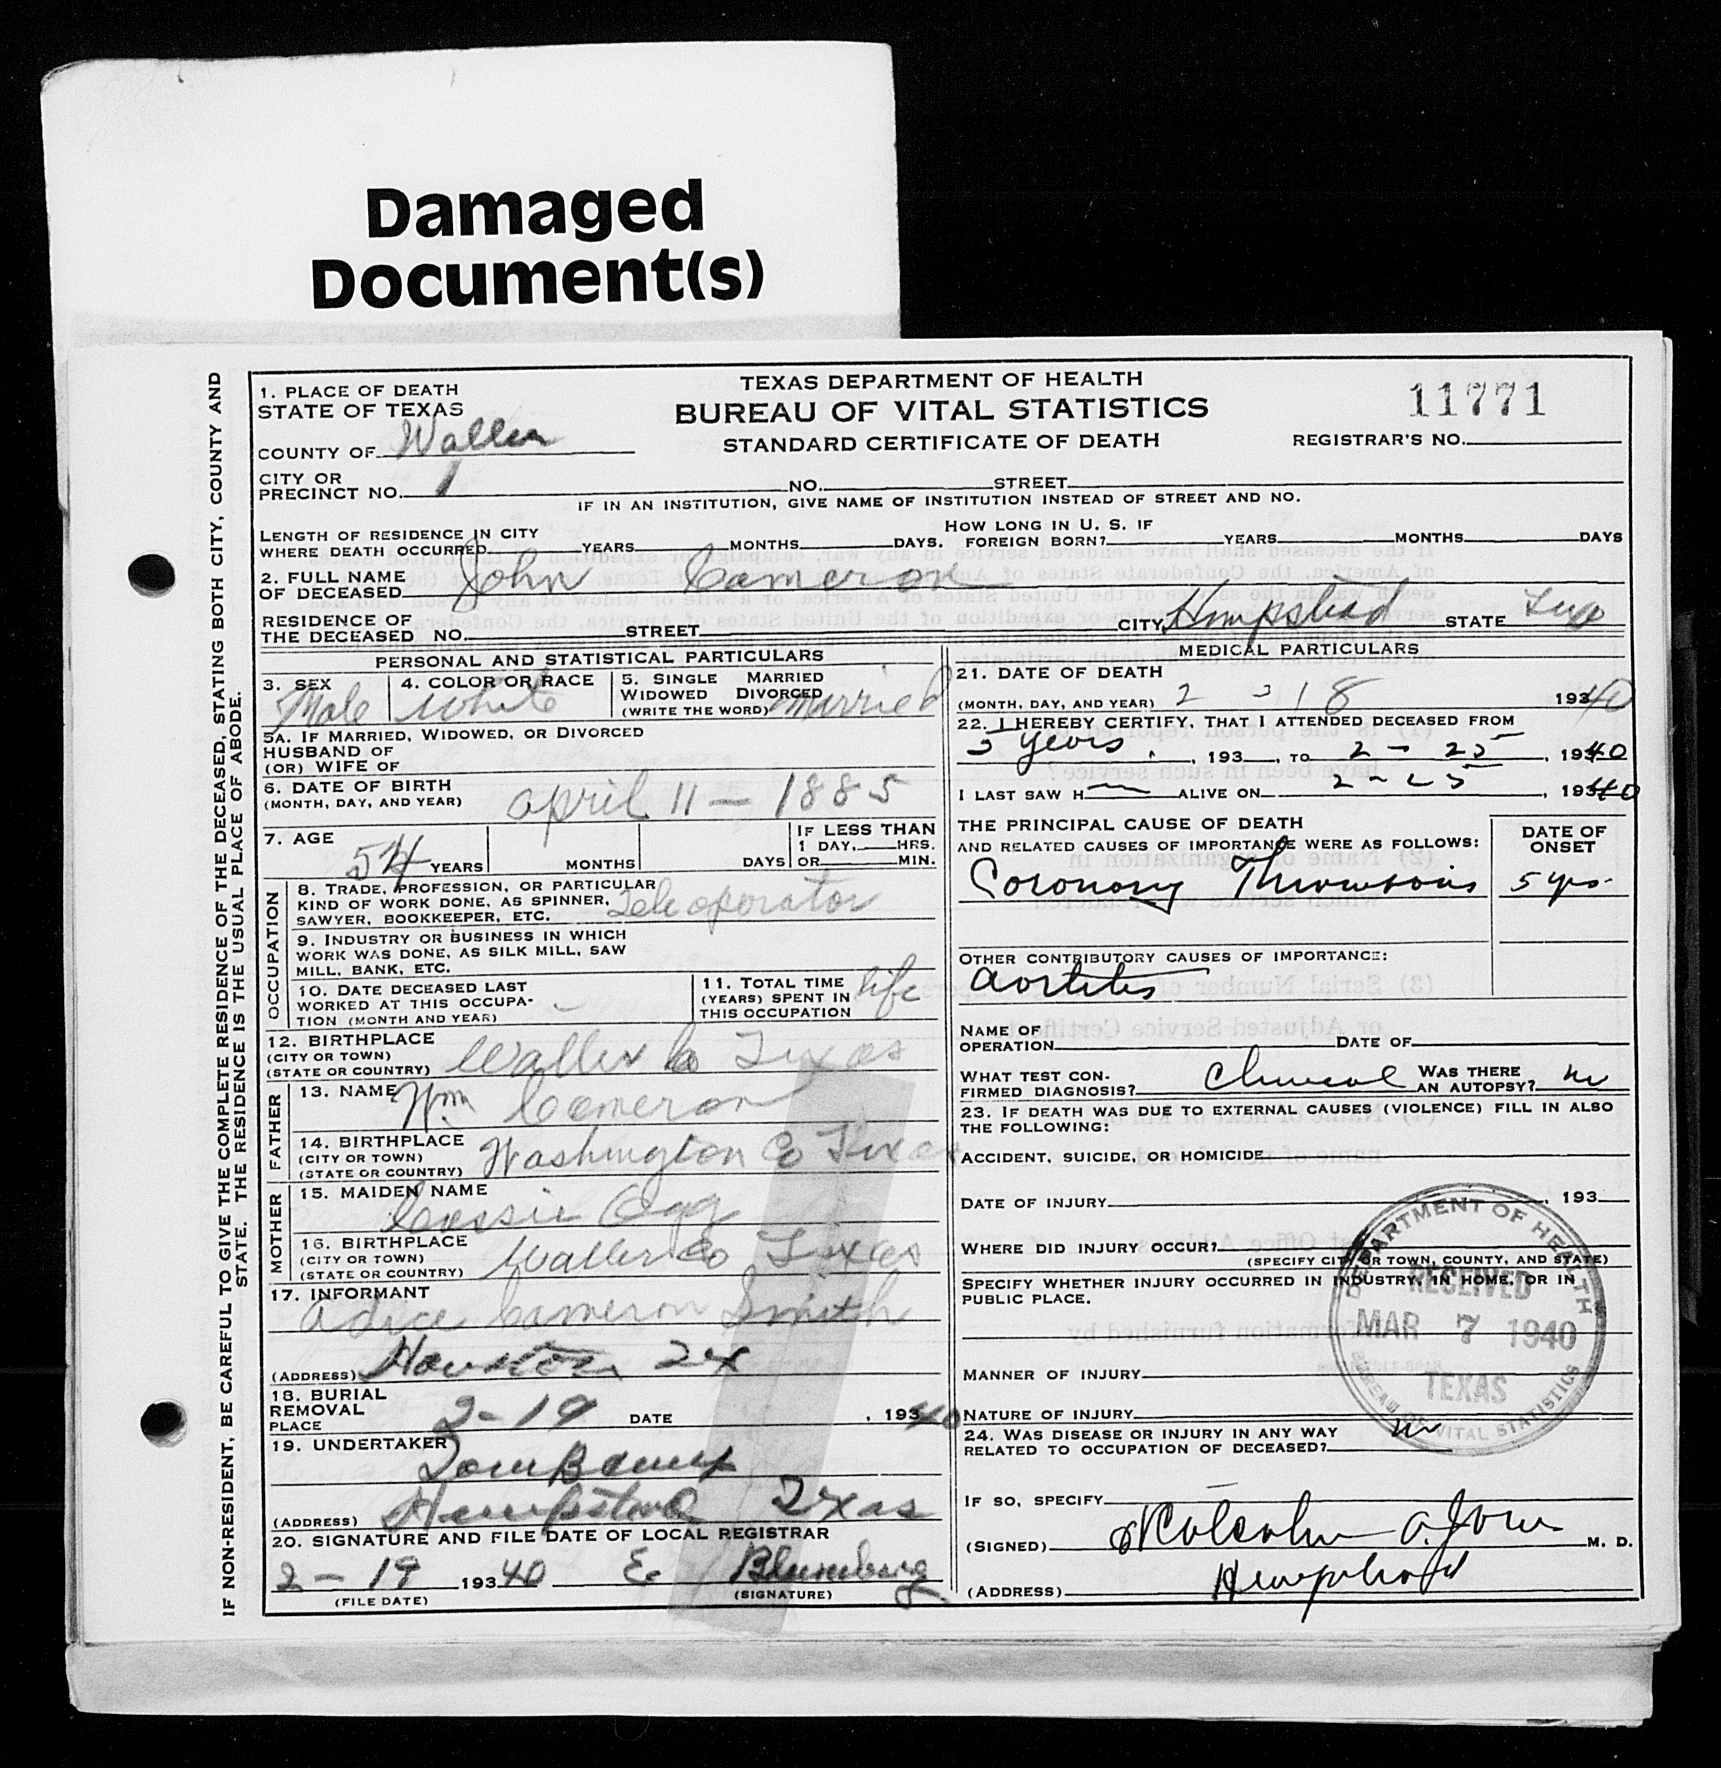 Damaged
Document(s)
IF NON-RESIDENT, BE CAREFUL TO GIVE THE COMPLETE RESIDENCE OF THE DECEASED, STATING BOTH CITY, COUNTY AND
STATE. THE RESIDENCE IS THE USUAL PLACE OF ABODE.
TEXAS DEPARTMENT OF HEALTH
BUREAU OF VITAL STATISTICS
STANDARD CERTIFICATE OF DEATH
11771
REGISTRAR'S NO.
1. PLACE OF DEATH
STATE OF TEXAS
COUNTY OF Waller
CITY OR
PRECINCT NO. 1 NO. STREET
IF IN AN INSTITUTION, GIVE NAME OF INSTITUTION INSTEAD OF STREET AND NO.
LENGTH OF RESIDENCE IN CITY
WHERE DEATH OCCURRED YEARS MONTHS DAYS.
HOW LONG IN U. S. IF
FOREIGN BORN? YEARS MONTHS DAYS
2. FULL NAME
OF DECEASED John Cameron
RESIDENCE OF
THE DECEASED NO. STREET CITY, Hempstead STATE Tex
PERSONAL AND STATISTICAL PARTICULARS
3. SEX
Male
4. COLOR OR RACE
White
5. SINGLE MARRIED
WIDOWED DIVORCED
(WRITE THE WORD) married
5A. IF MARRIED, WIDOWED, OR DIVORCED
HUSBAND OF
(OR) WIFE OF
6. DATE OF BIRTH
(MONTH, DAY, AND YEAR) April 11 - 1885
7. AGE
54 YEARS MONTHS DAYS
IF LESS THAN
1 DAY, HRS.
OR MIN.
OCCUPATION
8. TRADE, PROFESSION, OR PARTICULAR
KIND OF WORK DONE, AS SPINNER,
SAWYER, BOOKKEEPER, ETC. Tele operator
9. INDUSTRY OR BUSINESS IN WHICH
WORK WAS DONE, AS SILK MILL, SAW
MILL, BANK, ETC.
10. DATE DECEASED LAST
WORKED AT THIS OCCUPA-
TION (MONTH AND YEAR) -
11. TOTAL TIME
(YEARS) SPENT IN
THIS OCCUPATION life
12. BIRTHPLACE
(CITY OR TOWN)
(STATE OR COUNTRY) Waller Co Texas
FATHER
13. NAME Wm Cameron
14. BIRTHPLACE
(CITY OR TOWN)
(STATE OR COUNTRY) Washington Co Texas
MOTHER
15. MAIDEN NAME
Cassie Ogg
16. BIRTHPLACE
(CITY OR TOWN)
(STATE OR COUNTRY) Waller Co Texas
17. INFORMANT
Cameron Smith
(ADDRESS) Houston Tex
18. BURIAL
REMOVAL
PLACE 2-19 DATE , 1940
19. UNDERTAKER
Tom
(ADDRESS) Hempstead Texas
20. SIGNATURE AND FILE DATE OF LOCAL REGISTRAR
2-19 1940 E. Blumberg
(FILE DATE) (SIGNATURE)
MEDICAL PARTICULARS
21. DATE OF DEATH
(MONTH, DAY, AND YEAR) 2 - 18 1940
22. I HEREBY CERTIFY, THAT I ATTENDED DECEASED FROM
5 years, 193 , TO 2-25, 1940
I LAST SAW H ALIVE ON 2-25, 1940
THE PRINCIPAL CAUSE OF DEATH
AND RELATED CAUSES OF IMPORTANCE WERE AS FOLLOWS:
DATE OF
ONSET
Coronary Thrombosis 5 yrs.
OTHER CONTRIBUTORY CAUSES OF IMPORTANCE:
Aortitis
NAME OF
OPERATION DATE OF
WHAT TEST CON-
FIRMED DIAGNOSIS? Clinical
WAS THERE
AN AUTOPSY? no
23. IF DEATH WAS DUE TO EXTERNAL CAUSES (VIOLENCE) FILL IN ALSO
THE FOLLOWING:
ACCIDENT, SUICIDE, OR HOMICIDE
DATE OF INJURY , 193
WHERE DID INJURY OCCUR?
(SPECIFY CITY OR TOWN, COUNTY, AND STATE)
SPECIFY WHETHER INJURY OCCURRED IN INDUSTRY, IN HOME, OR IN
PUBLIC PLACE.
MANNER OF INJURY
NATURE OF INJURY
24. WAS DISEASE OR INJURY IN ANY WAY
RELATED TO OCCUPATION OF DECEASED? no
IF SO, SPECIFY
(SIGNED) Malcolm A. Jones M. D.
(ADDRESS) Hempstead
DEPARTMENT OF HEALTH
RECEIVED
MAR 7 1940
TEXAS
BUREAU OF VITAL STATISTICS